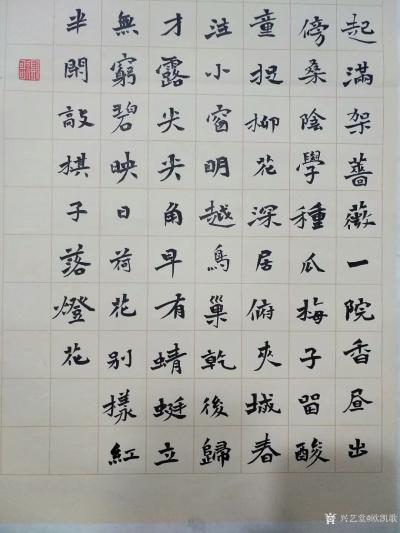 起滿架薔薇一院香昼出
傍桑陰學種瓜梅子留酸
童捉柳花深居俯夾城春
注小窗明越鳥巢乾後歸
才露尖尖角早有蜻蜓立
無窮碧映日荷花别樣紅
半閑敲棋子落燈花
兴艺堂@欧凯歌